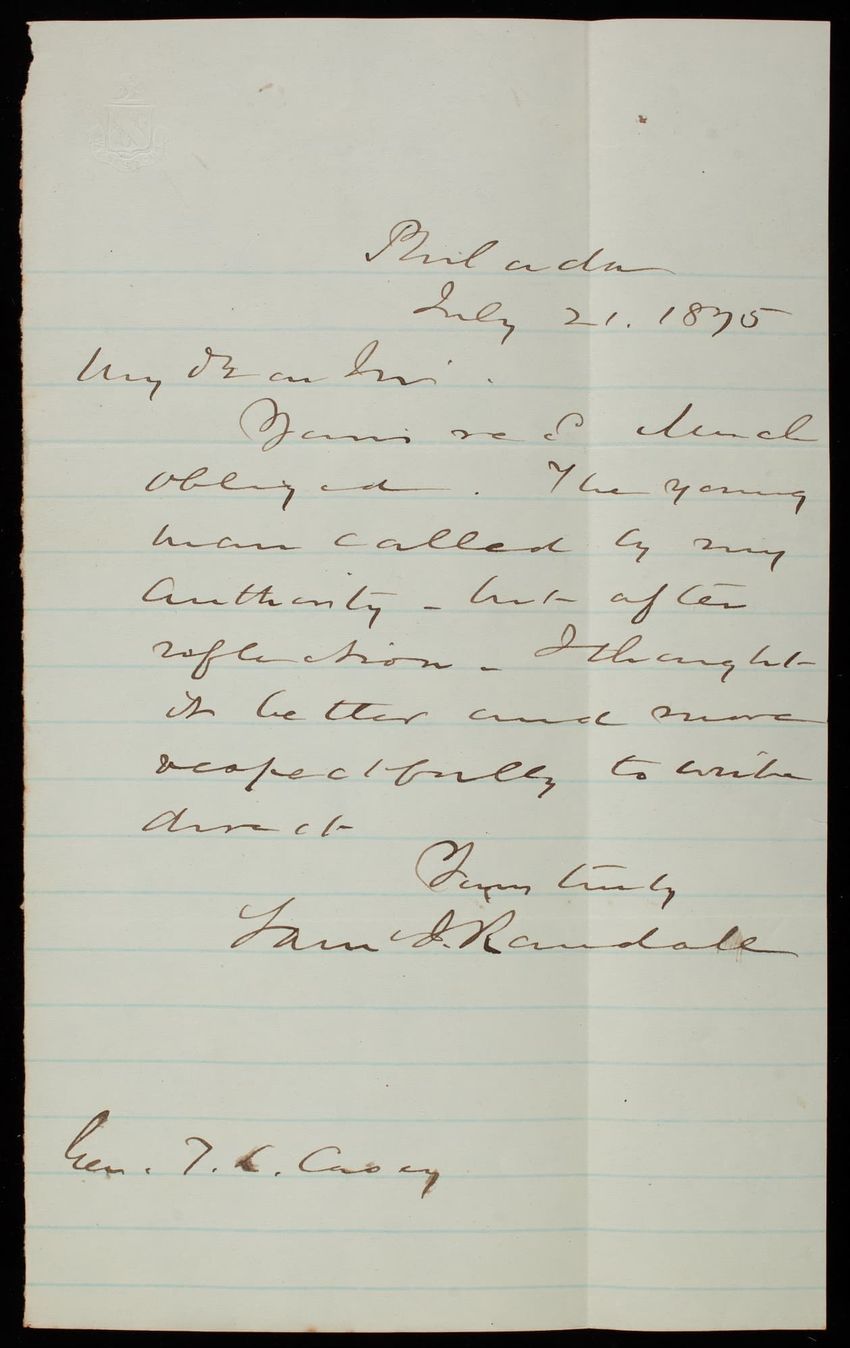 Philada
July 21. 1875
My Dear Sir.
Yours recd Much
obliged. The young
man called by my
authority - but after
reflection - I thought
it better and more
respectfully to write
direct
Yours truly
Sam J. Randall
Gen. T. L. Casey